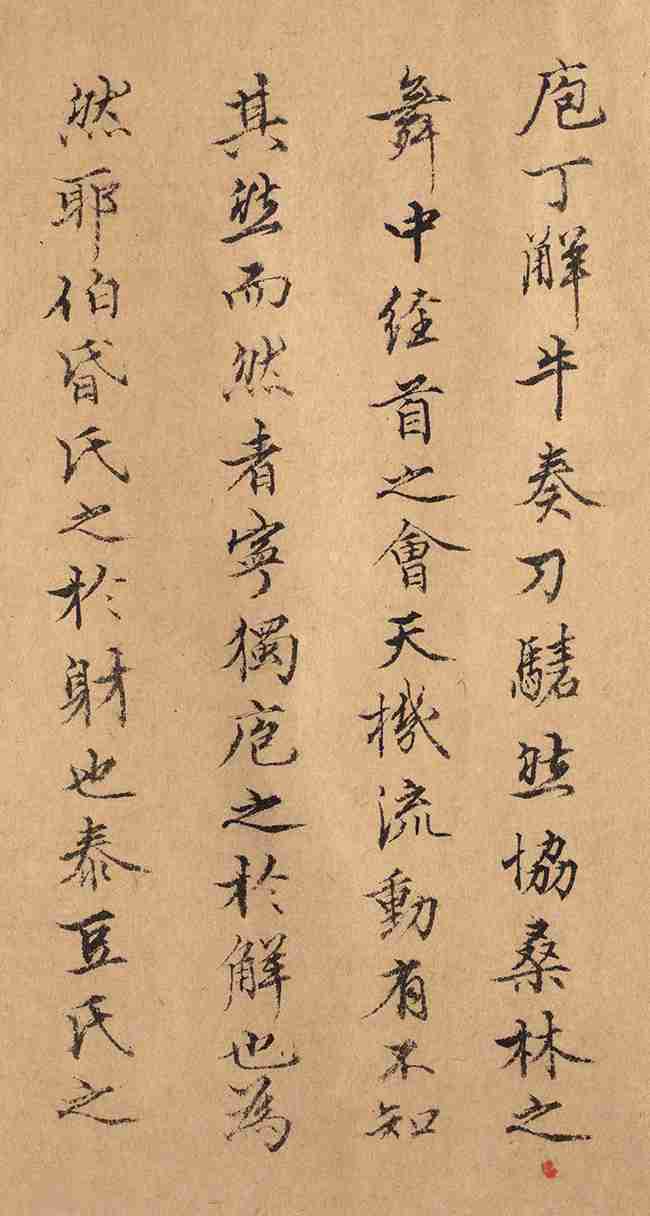 庖丁解牛奏刀騞然協桑林之
舞中經首之會天機流動有不知
其然而然者寧獨庖之於解也為
然耶伯昏氏之於射也泰豆氏之